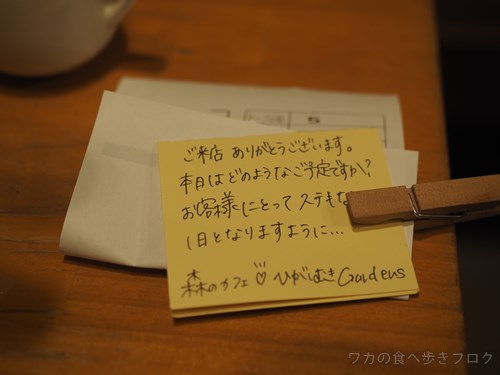 ご来店 ありがとうございます。
本日はどのようなご予定ですか?
お客様にとって ステキな
1日となりますように...
森のカフェ♡ ひがしむき Gardens
ワカの食べ歩きブログ